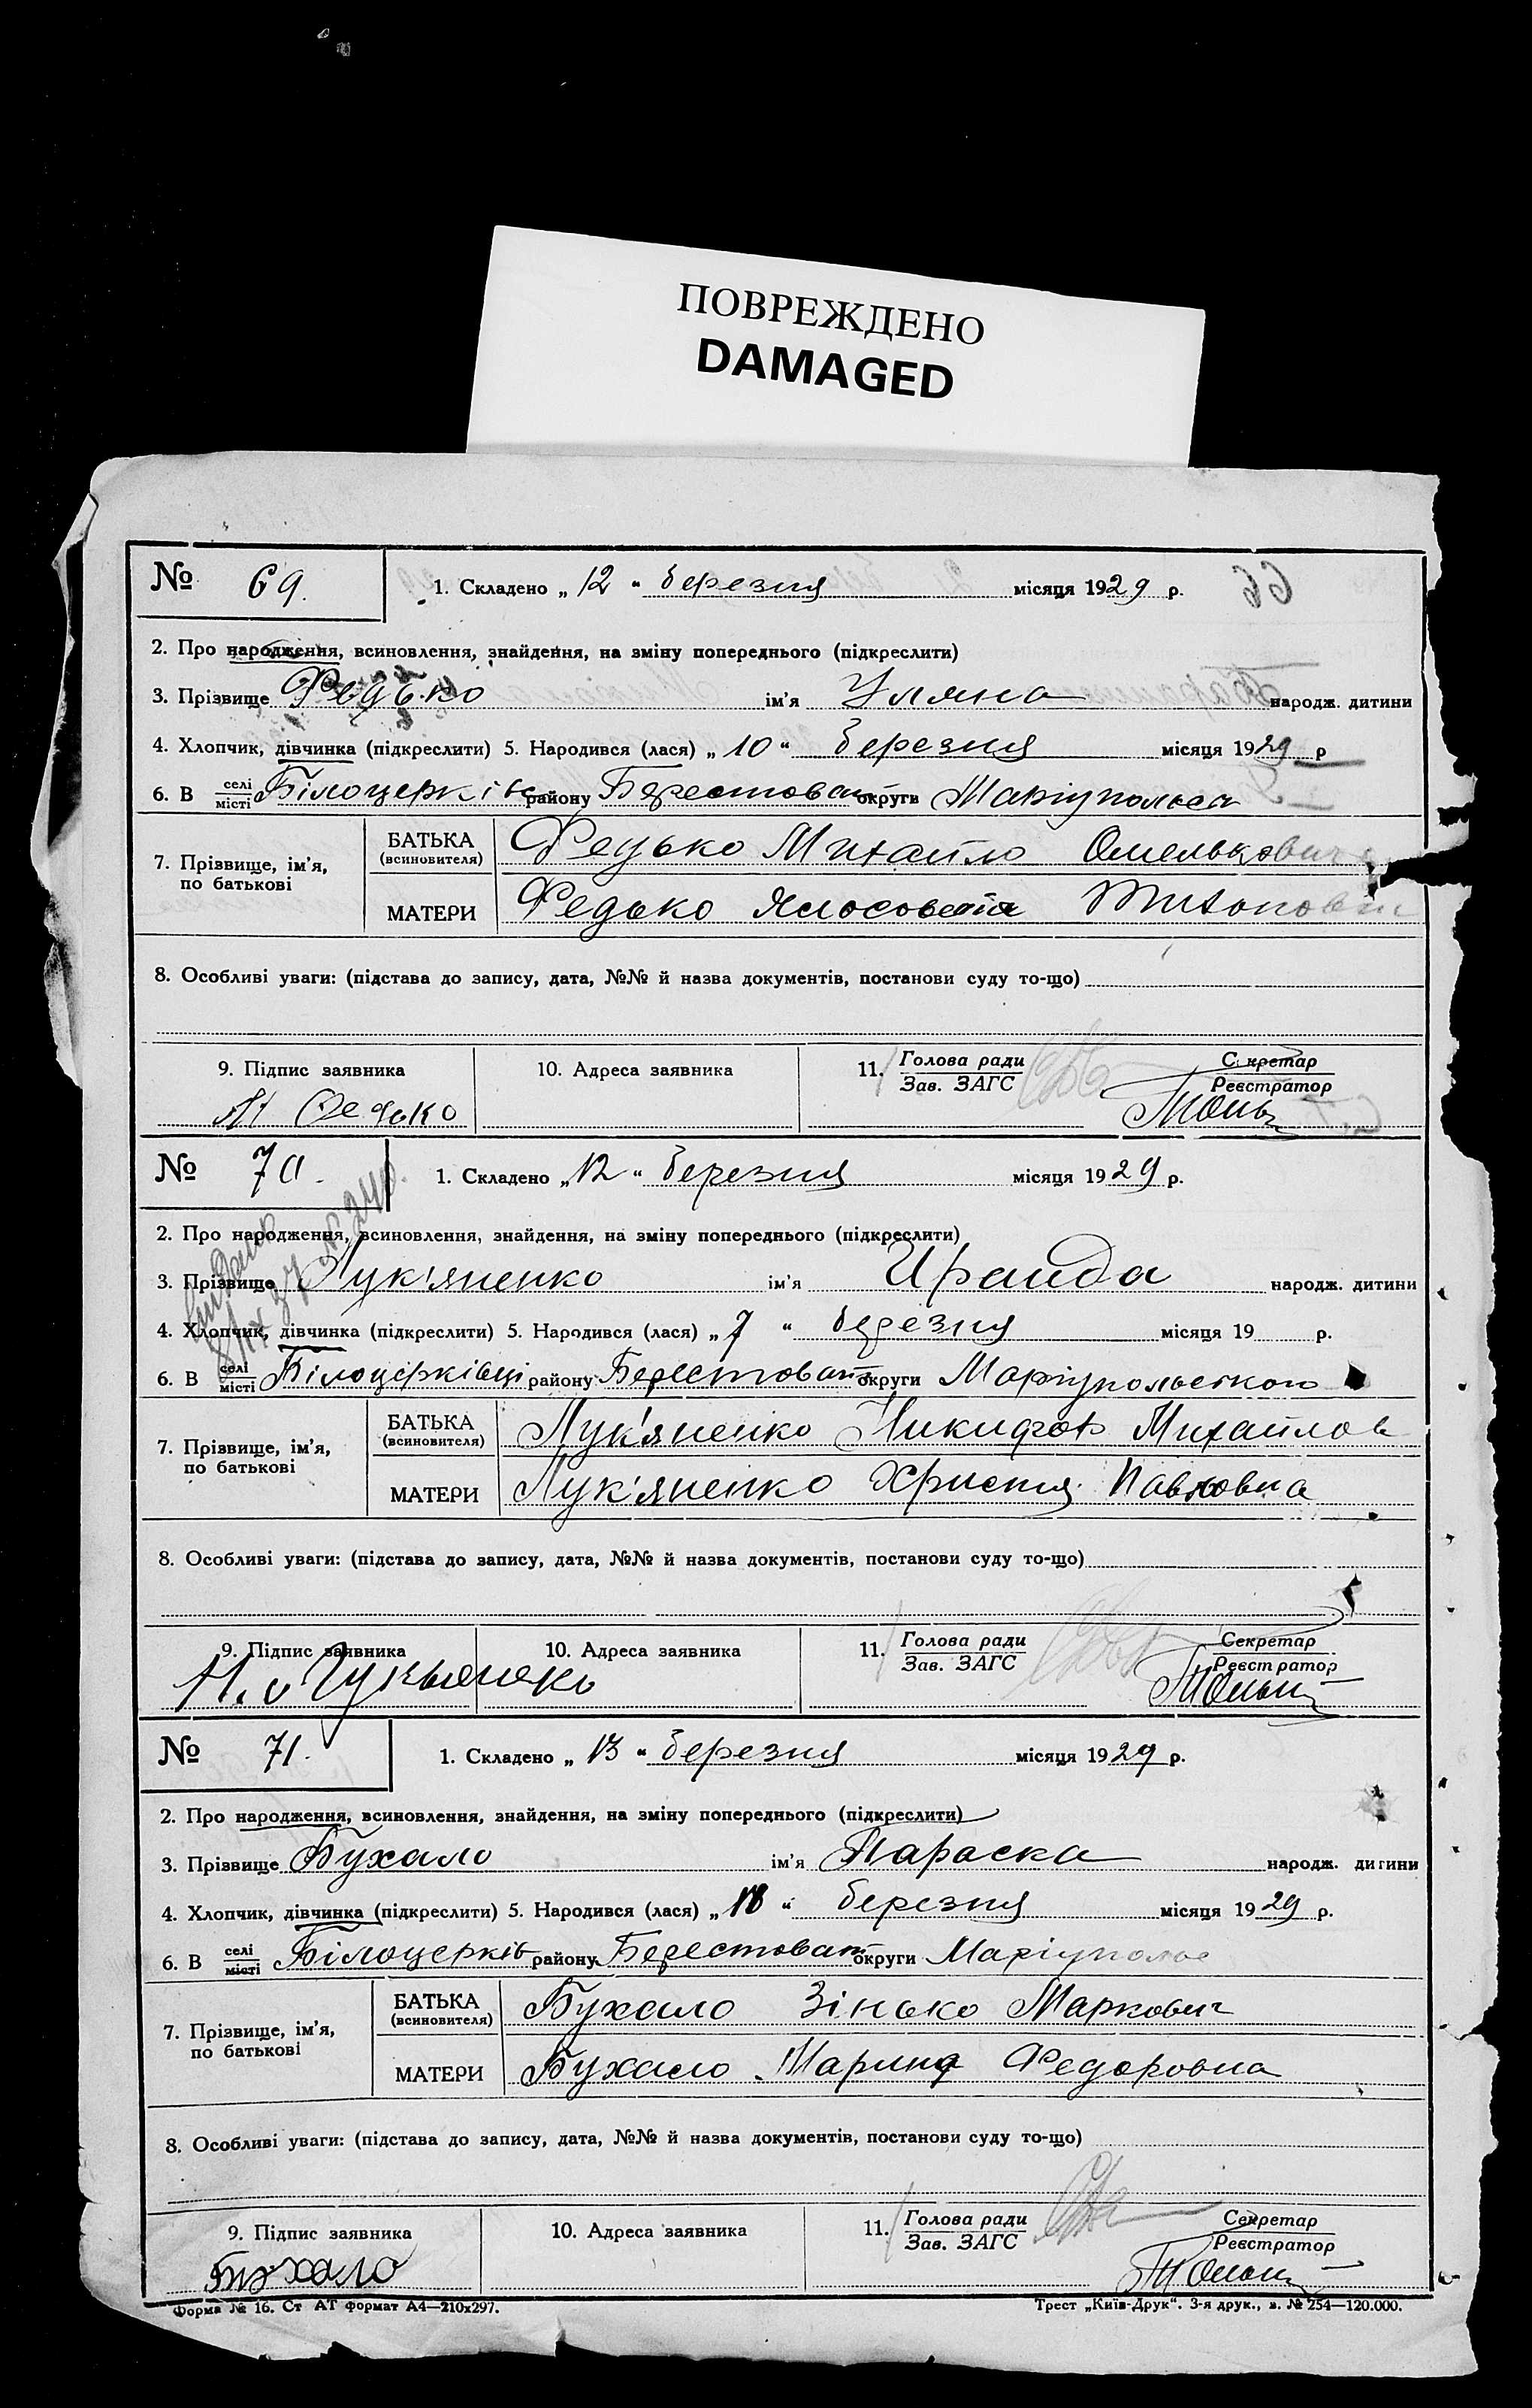 ПОВРЕЖДЕНО
DAMAGED
№ 69. 1. Складено „ 12 “ березня місяця 1929 р.
2. Про народження, всиновлення, знайдення, на зміну попереднього (підкреслити)
3. Прізвище Федько ім'я Уляна народж. дитини
4. Хлопчик, дівчинка (підкреслити) 5. Народився (лася) „ 10 “ березня місяця 1929 р
6. В селі місті Білоцерків району Берестоват округи Маріупольса
7. Прізвище, ім'я, по батькові
БАТЬКА (всиновителя) Федько Михайло Омелькович
МАТЕРИ Федько
8. Особливі уваги: (підстава до запису, дата, №№ й назва документів, постанови суду то-що)
9. Підпис заявника 10. Адреса заявника 11. Голова ради Зав. ЗАГС Секретар Реєстратор
Федько
№ 70. 1. Складено „ 12 “ березня місяця 1929 р.
2. Про народження, всиновлення, знайдення, на зміну попереднього (підкреслити)
3. Прізвище Лук'яненко ім'я Ираида народж. дитини
4. Хлопчик, дівчинка (підкреслити) 5. Народився (лася) „ 7 “ березня місяця 19 р.
6. В селі місті Білоцерківці району Берестоват округи Маріупольського
7. Прізвище, ім'я, по батькові
БАТЬКА (всиновителя) Лук'яненко Никифор Михайлов
МАТЕРИ Лук'яненко Христя Павловна
8. Особливі уваги: (підстава до запису, дата, №№ й назва документів, постанови суду то-що)
9. Підпис заявника 10. Адреса заявника 11. Голова ради Зав. ЗАГС Секретар Реєстратор
№ 71. 1. Складено „ 13 “ березня місяця 1929 р.
2. Про народження, всиновлення, знайдення, на зміну попереднього (підкреслити)
3. Прізвище Бухало ім'я Параска народж. дитини
4. Хлопчик, дівчинка (підкреслити) 5. Народився (лася) „ “ березня місяця 1929 р.
6. В селі місті Білоцерків району Берестоват округи Маріупольс
7. Прізвище, ім'я, по батькові
БАТЬКА (всиновителя) Бухало Зінько Маркович
МАТЕРИ Бухало Марина Федоровна
8. Особливі уваги: (підстава до запису, дата, №№ й назва документів, постанови суду то-що)
9. Підпис заявника 10. Адреса заявника 11. Голова ради Зав. ЗАГС Секретар Реєстратор
Бухало
Форма № 16. Ст АТ формат А4—210х297. Трест „Київ-Друк“. 3-я друк., з. № 254—120.000.